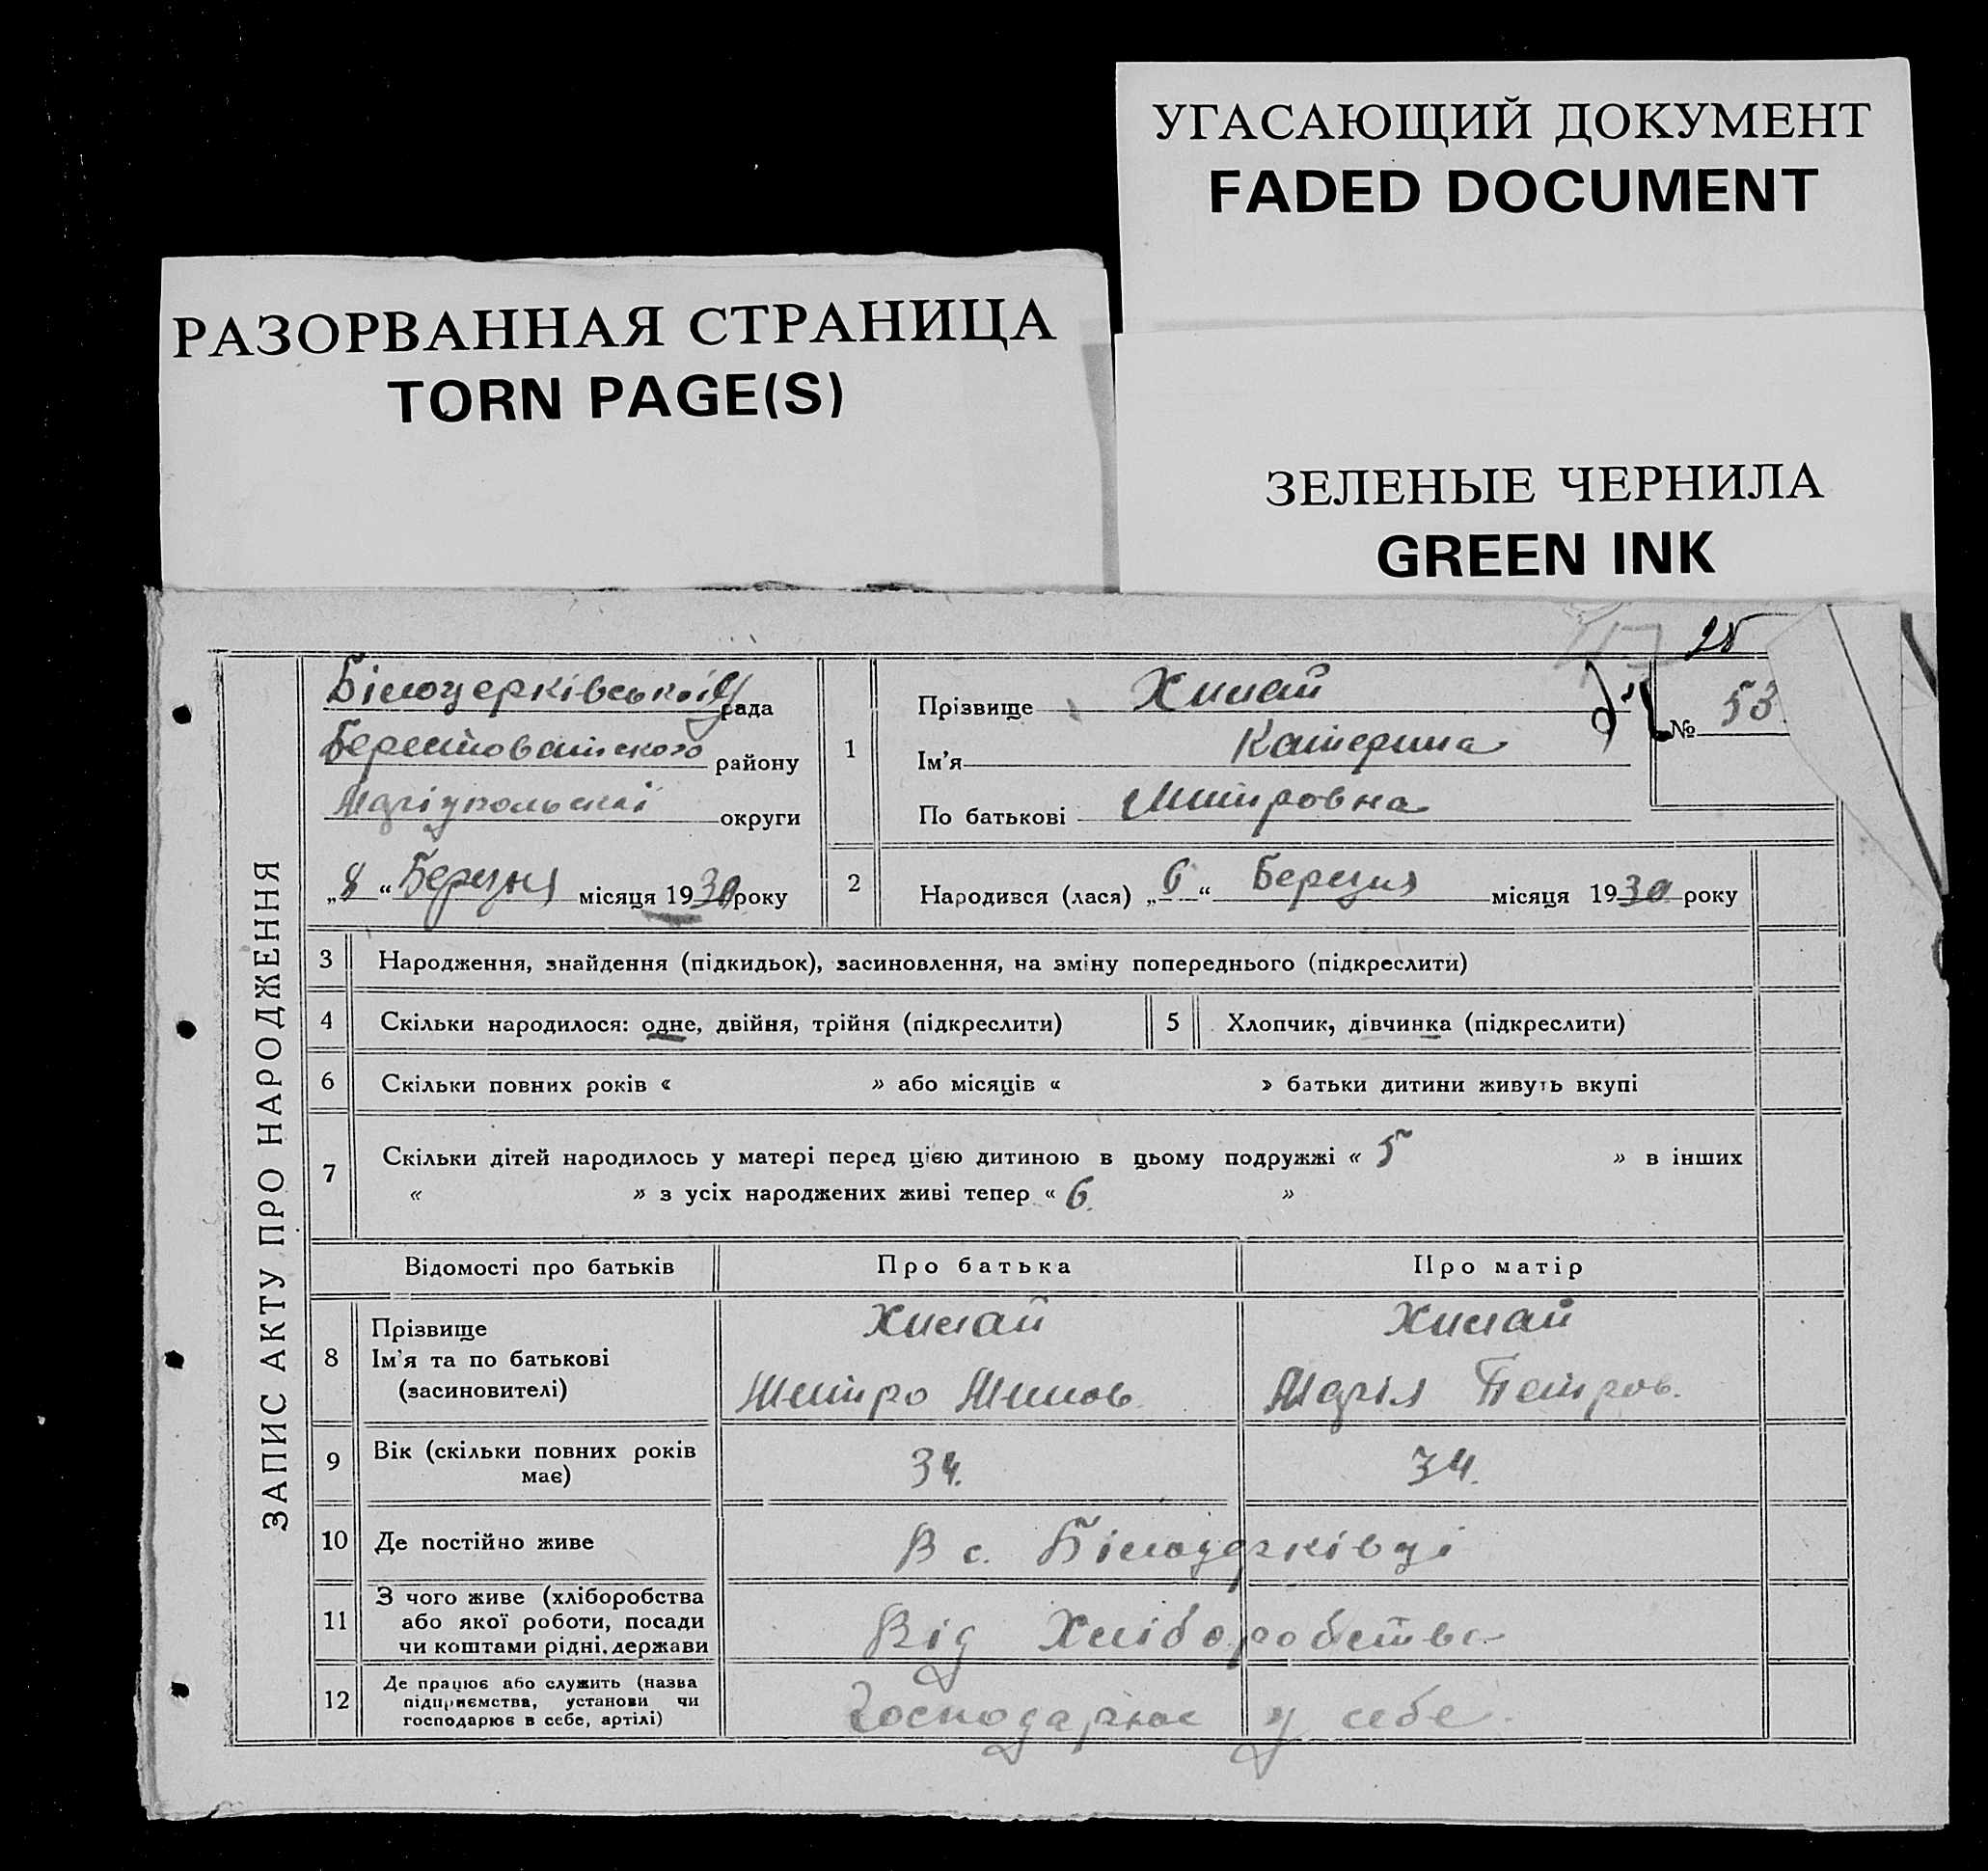 УГАСАЮЩИЙ ДОКУМЕНТ
FADED DOCUMENT
РАЗОРВАННАЯ СТРАНИЦА
TORN PAGE(S)
ЗЕЛЕНЫЕ ЧЕРНИЛА
GREEN INK
ЗАПИС АКТУ ПРО НАРОДЖЕННЯ
Білоцерківської рада
Берестоватського району
Маріупольські округи
„8“ Березня місяця 1930 року
1
Прізвище Хилай
Ім’я Катерина
По батькові Митровна
№ 53
2 Народився (лася) „6“ Березня місяця 1930 року
3 Народження, знайдення (підкидьок), засиновлення, на зміну попереднього (підкреслити)
4 Скільки народилося: одне, двійня, трійня (підкреслити) 5 Хлопчик, дівчинка (підкреслити)
6 Скільки повних років « » або місяців « » батьки дитини живуть вкупі
7 Скільки дітей народилось у матері перед цією дитиною в цьому подружжі « 5 » в інших
« » з усіх народжених живі тепер « 6 »
Відомості про батьків Про батька Про матір
8 Прізвище Хилай Хилай
Ім’я та по батькові Митро Марія Петров.
(засиновителі)
9 Вік (скільки повних років має) 34. 34.
10 Де постійно живе В с. Білоцерківці
11 З чого живе (хліборобства
або якої роботи, посади Від Хліборобства
чи коштами рідні, держави
12 Де працює або служить (назва
підприємства, установи чи Господарює у себе.
господарює в себе, артілі)